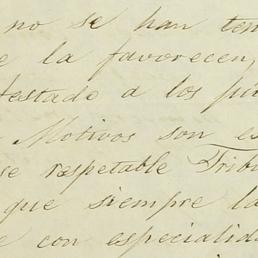 no se han ten
e la favorecen,
testado a los pi
Motivos son es
se respetable Tribu
que siempre la
e con especialida